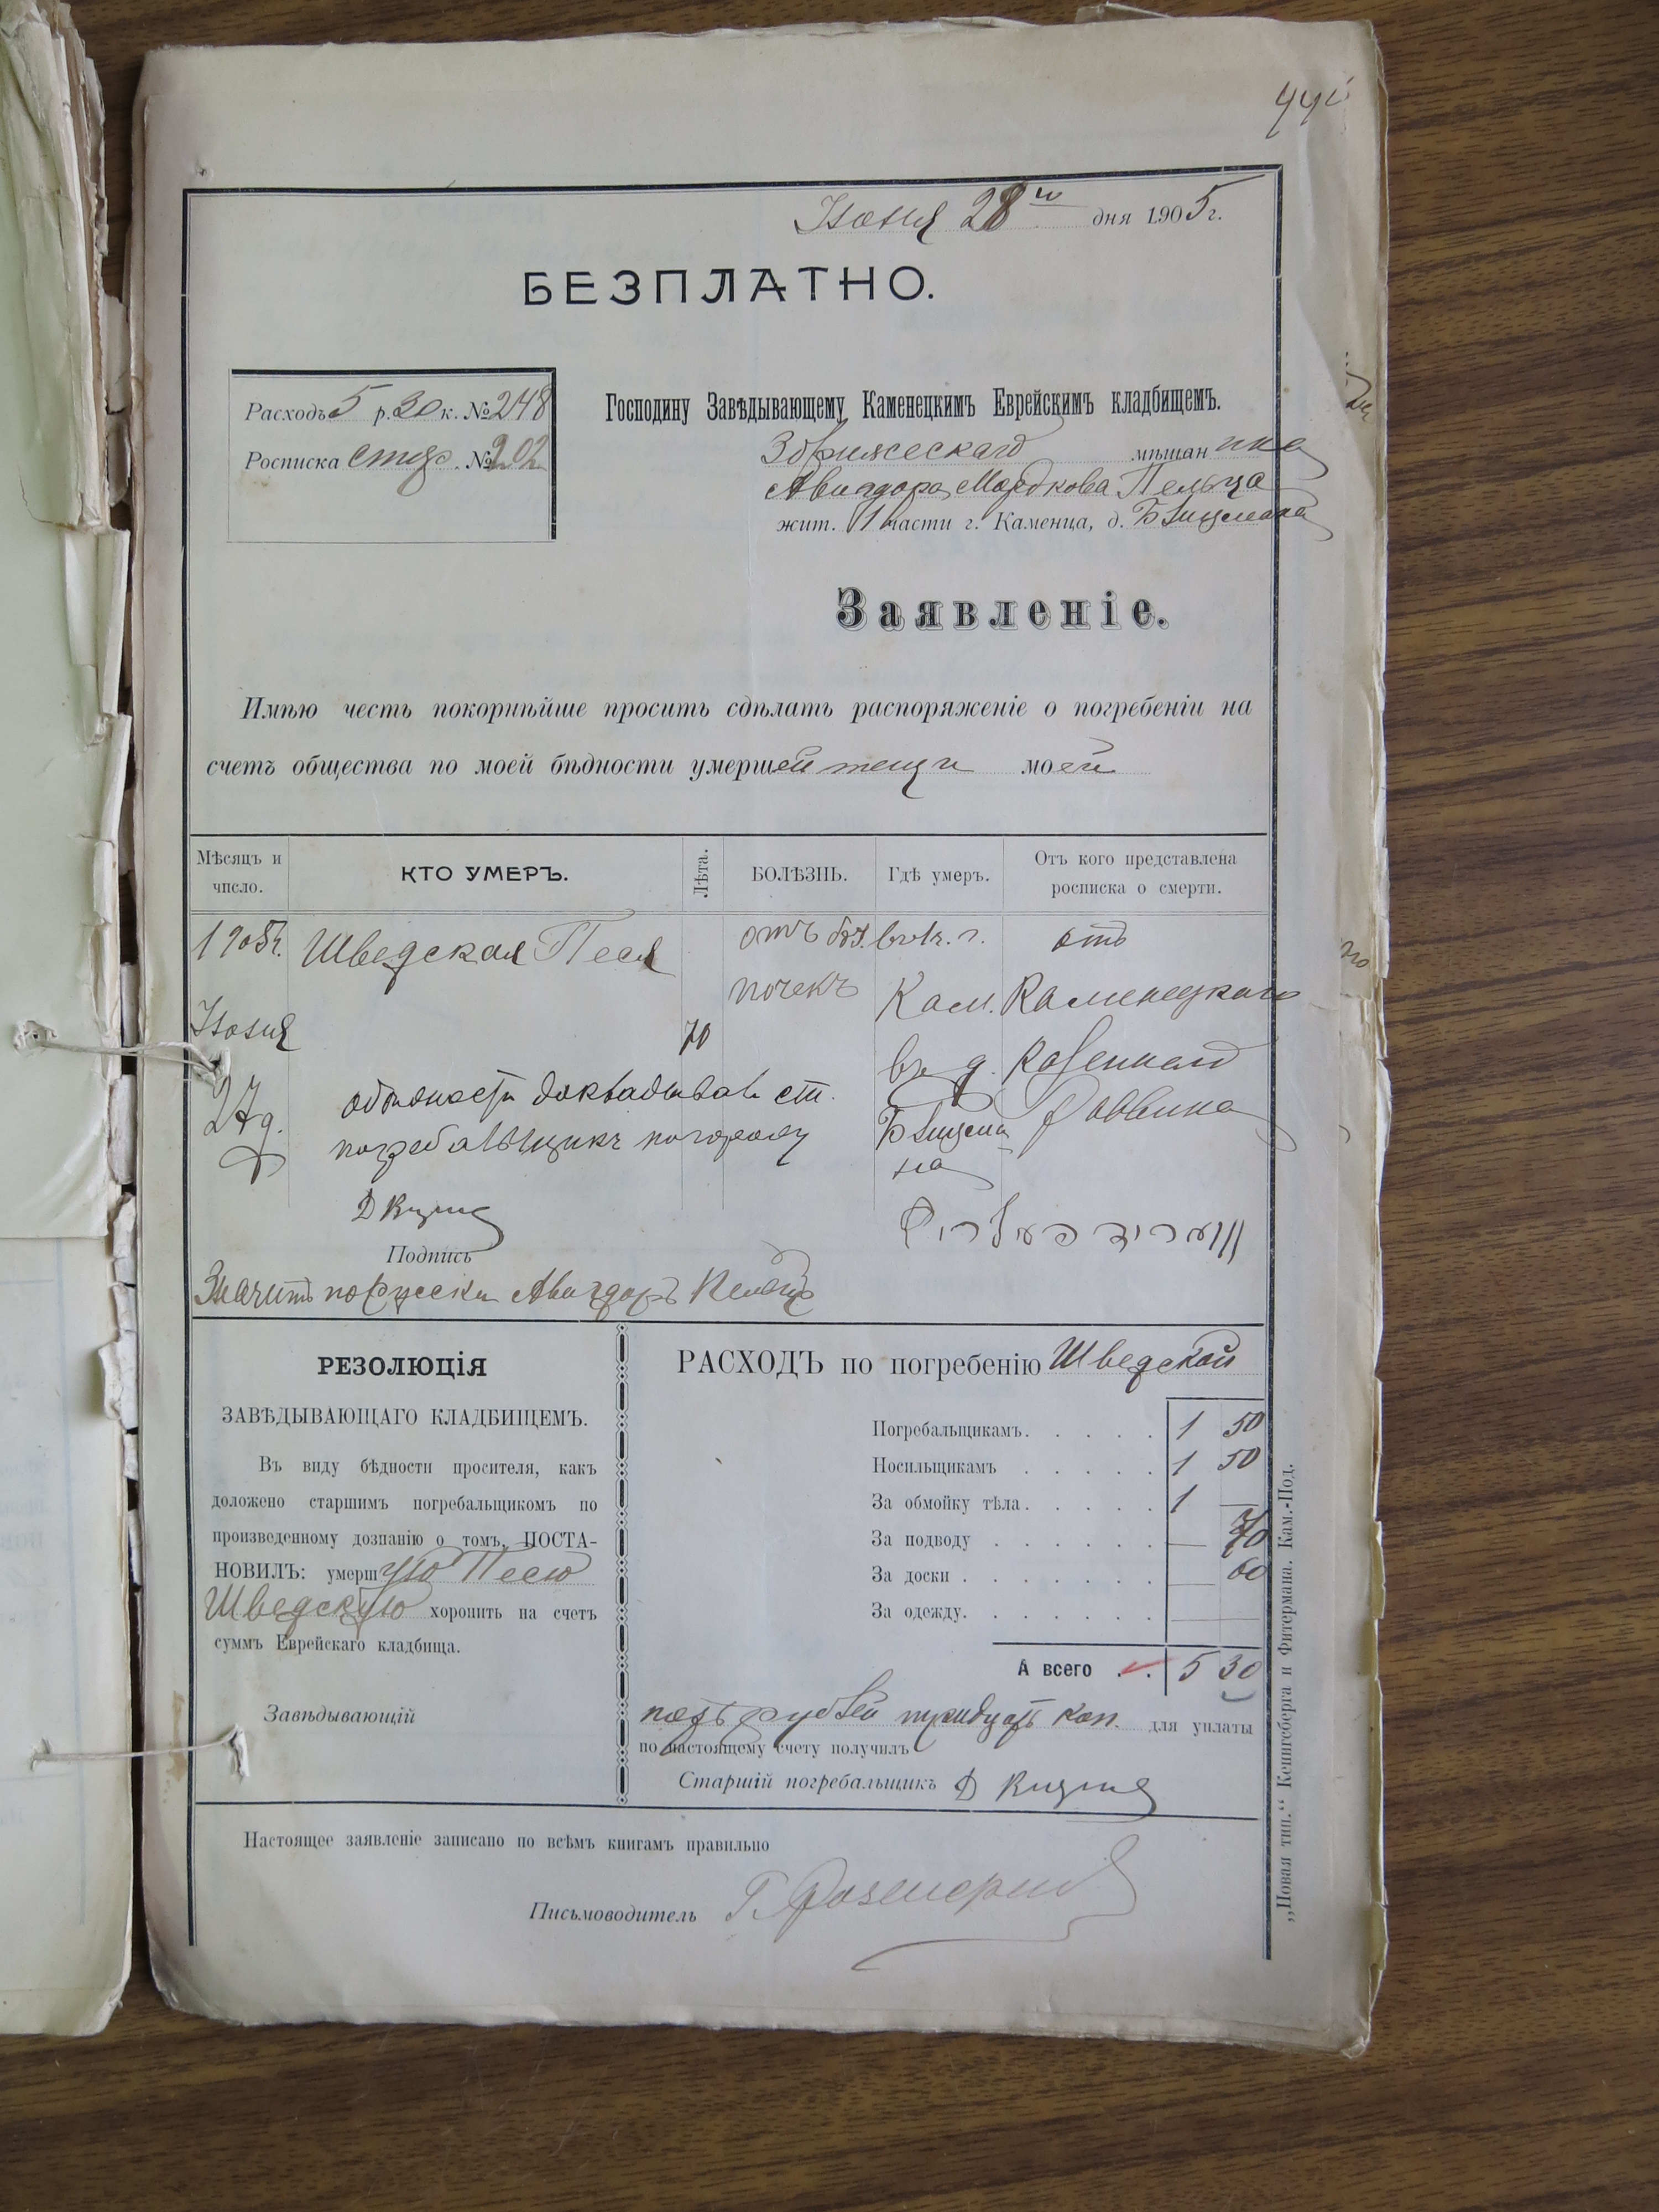 Іюня 28 го дня 1905 г.
БЕЗПЛАТНО.
Расходъ 5 р. 30 к. № 248
Росписка № 202
Господину Завѣдывающему Каменецкимъ Еврейскимъ кладбищемъ.
мѣщанина
Авигдора Мордкова Пельца
жит. 1 части г. Каменца, д.
Заявленіе.
Имѣю честь покорнѣйше просить сдѣлать распоряженіе о погребеніи на
счетъ общества по моей бѣдности умершей тещи моей
Мѣсяцъ и число.
КТО УМЕРЪ.
Лѣта.
БОЛѢЗНЬ.
Гдѣ умеръ.
Отъ кого представлена росписка о смерти.
1905 г. Шведская Песя
отъ
почекъ
въ г.
Кам.
въ д.
отъ
Каменецкаго
Казеннаго
Раввина
Іюня
27 д.
70
о бѣдности докладывалъ ст.
погребальщикъ
Подпись
Значитъ по русски Авигдоръ Пельцъ
РЕЗОЛЮЦІЯ
ЗАВѢДЫВАЮЩАГО КЛАДБИЩЕМЪ.
Въ виду бѣдности просителя, какъ
доложено старшимъ погребальщикомъ по
произведенному дознанію о томъ, ПОСТА-
НОВИЛЪ: умершую Песю
Шведскую хоронить на счетъ
суммъ Еврейскаго кладбища.
Завѣдывающій
РАСХОДЪ по погребенію Шведской
Погребальщикамъ. . . . . 1 50
Носильщикамъ . . . . . 1 50
За обмойку тѣла. . . . . 1 —
За подводу . . . . . . — 70
За доски . . . . . . . — 60
За одежду. . . . . . .
А всего . . 5 30
пять рублей тридцать коп. для уплаты
по настоящему счету получилъ
Старшій погребальщикъ
Настоящее заявленіе записано по всѣмъ книгамъ правильно
Письмоводитель
„Новая тип.“ Кенигсберга и Фитермана. Кам.-Под.